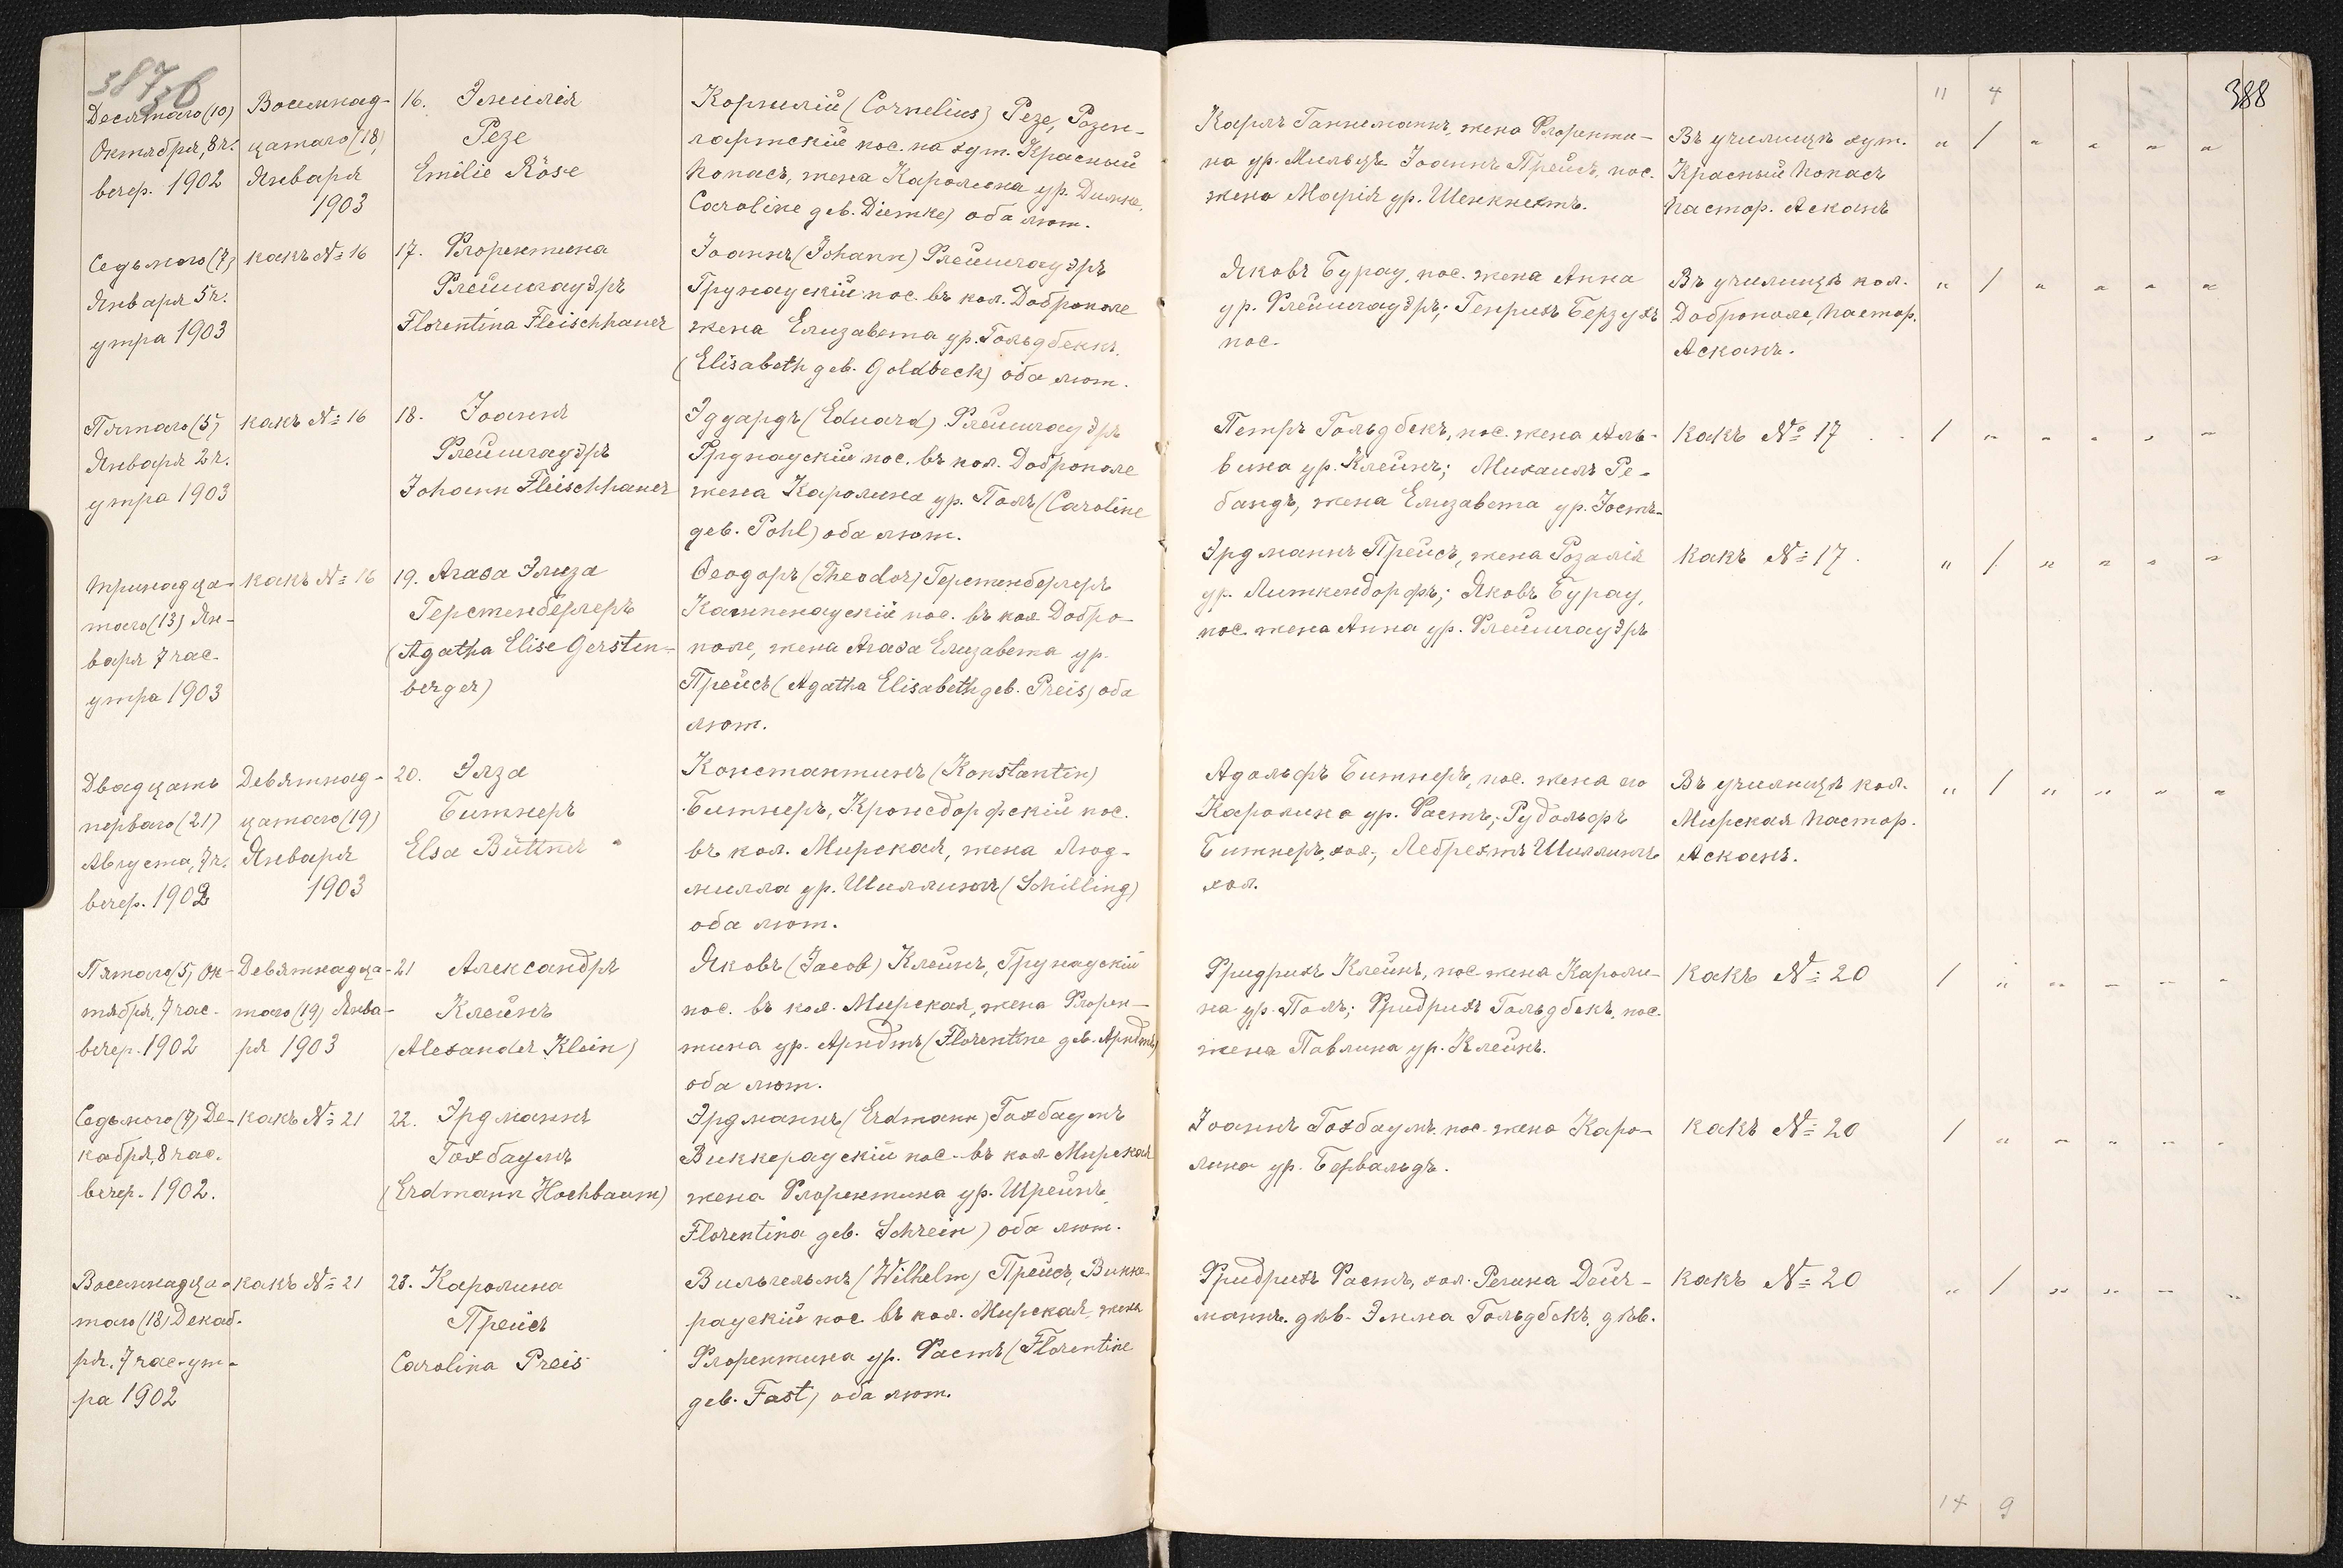 387b
Десятаго (10)
Октября, 8 ч.
вечер. 1902
Восемнад-
цатаго (18)
Января
1903
16. Эмилія
Резе
Emilie Röse
Корнилій (Cornelius) Резе, Розен-
гартскій пос. на хут. Красный
Копасъ, жена Каролина ур. Димке,
Caroline geb. Diemke) оба лют.
Карлъ Ганнеманнъ, жена Флоренти-
на ур. Мильцъ Іоаннъ Прейсъ, пос.
жена Марія ур. Шенкнехтъ.
Въ училищѣ хут.
Красный Копасъ
Пастор. Асканъ
11 4
388
" 1 " " " "
Седьмого (7)
Января 5 ч.
утра 1903
какъ № 16
17. Флорентина
Флейшгауэръ
Florentina Fleischhauer
Іоаннъ (Johann) Флейшгауэръ
Грунаускій пос. въ кол. Доброполе
жена Елизавета ур. Гольдбекъ
(Elisabeth geb. Goldbeck) оба лют.
Яковъ Бурау, пос. жена Анна
ур. Флейшгауэръ; Генрихъ Берзухъ
пос.
Въ училищѣ кол.
Доброполе, Пастор.
Асканъ.
" 1 " " " "
Пятаго (5)
Января 2 ч.
утра 1903
какъ № 16
18. Іоаннъ
Флейшгауэръ
Johann Fleischhauer
Эдуардъ (Eduard) Флейшгауэръ
Грунаускій пос. въ кол. Доброполе
жена Каролина ур. Полъ (Caroline
geb. Pohl) оба лют.
Петръ Гольдбекъ, пос. жена Аль-
вина ур. Клейнъ; Михаилъ Ре-
бандъ, жена Елизавета ур. Іостъ
какъ № 17
1 " " " " "
Тринадца-
таго (13) Ян-
варя 7 час.
утра 1903
какъ № 16
19. Агаѳа Элиза
Герстенбергеръ
(Agatha Elise Gersten-
berger)
Ѳеодоръ (Theodor) Герстенбергеръ
Кампенаускій пос. въ кол. Добро-
поле, жена Агаѳа Елизавета ур.
Прейсъ (Agatha Elisabeth geb. Preis) оба
лют.
Эрдманнъ Прейсъ, жена Розалія
ур. Литкендорфъ; Яковъ Бурау,
пос. жена Анна ур. Флейшгауэръ
какъ № 17.
" 1 " " " "
Двадцать
перваго (21)
Августа, 7 ч.
вечер. 1902
Девятнад-
цатаго (19)
Января
1903
20. Элза
Битнеръ
Elsa Büttner
Константинъ (Konstantin)
Битнеръ, Кронсдорфскій пос.
въ кол. Мирская, жена Люд-
милла ур. Шиллингъ (Schilling)
оба лют.
Адольфъ Битнеръ, пос. жена его
Каролина ур. Фастъ; Рудольфъ
Битнеръ, хол.; Лебрехтъ Шиллингъ
хол.
Въ училищѣ кол.
Мирская Пастор.
Асканъ.
" 1 " " " "
Пятаго (5) Ок-
тября, 7 час.
вечер. 1902
Девятнадца-
таго (19) Янва-
ря 1903
21 Александръ
Клейнъ
(Alexander Klein)
Яковъ (Jacob) Клейнъ, Грунаускій
пос. въ кол. Мирская, жена Флорен-
тина ур. Арндтъ (Florentine geb. Арндтъ)
оба лют.
Фридрихъ Клейнъ, пос. жена Кароли-
на ур. Полъ; Фридрихъ Гольдбекъ, пос.
жена Павлина ур. Клейнъ.
какъ № 20
1 " " " " "
Седьмого (7) Де-
кабря, 8 час.
вечер. 1902.
какъ № 21
22. Эрдманнъ
Гохбаумъ
(Erdmann Hochbaum)
Эрдманнъ (Erdmann) Гохбаумъ
Виккерауский пос. въ кол. Мирская
жена Флорентина ур. Шрейнъ,
Florentina geb. Schrein) оба лют.
Іоаннъ Гохбаумъ, пос. жена Каро-
лина ур. Бервальдъ.
какъ № 20
1 " " " " "
Восемнадца-
таго (18) Декаб-
ря, 7 час. ут-
ра 1902
какъ № 21
23. Каролина
Прейсъ
Carolina Preis
Вильгельмъ (Wilhelm) Прейсъ, Викке-
рауский пос. въ кол. Мирская, жена
Флорентина ур. Фастъ (Florentine
geb. Fast) оба лют.
Фридрихъ Фастъ, хол. Регина Дейч-
маннъ. дѣв. Эмма Гольдбекъ, дѣв.
какъ № 20
" 1 " " " "
14 9